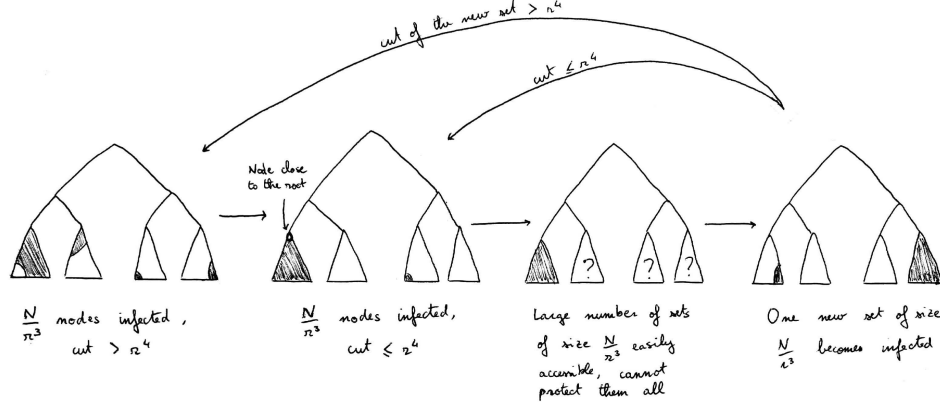 cut of the new set > r⁴
cut ≤ r⁴
Node close
to the root
? ? ?
N/r³ nodes infected,
cut > r⁴
N/r³ nodes infected,
cut ≤ r⁴
Large number of sets
of size N/r³ easily
accessible, cannot
protect them all
One new set of size
N/r³ becomes infected